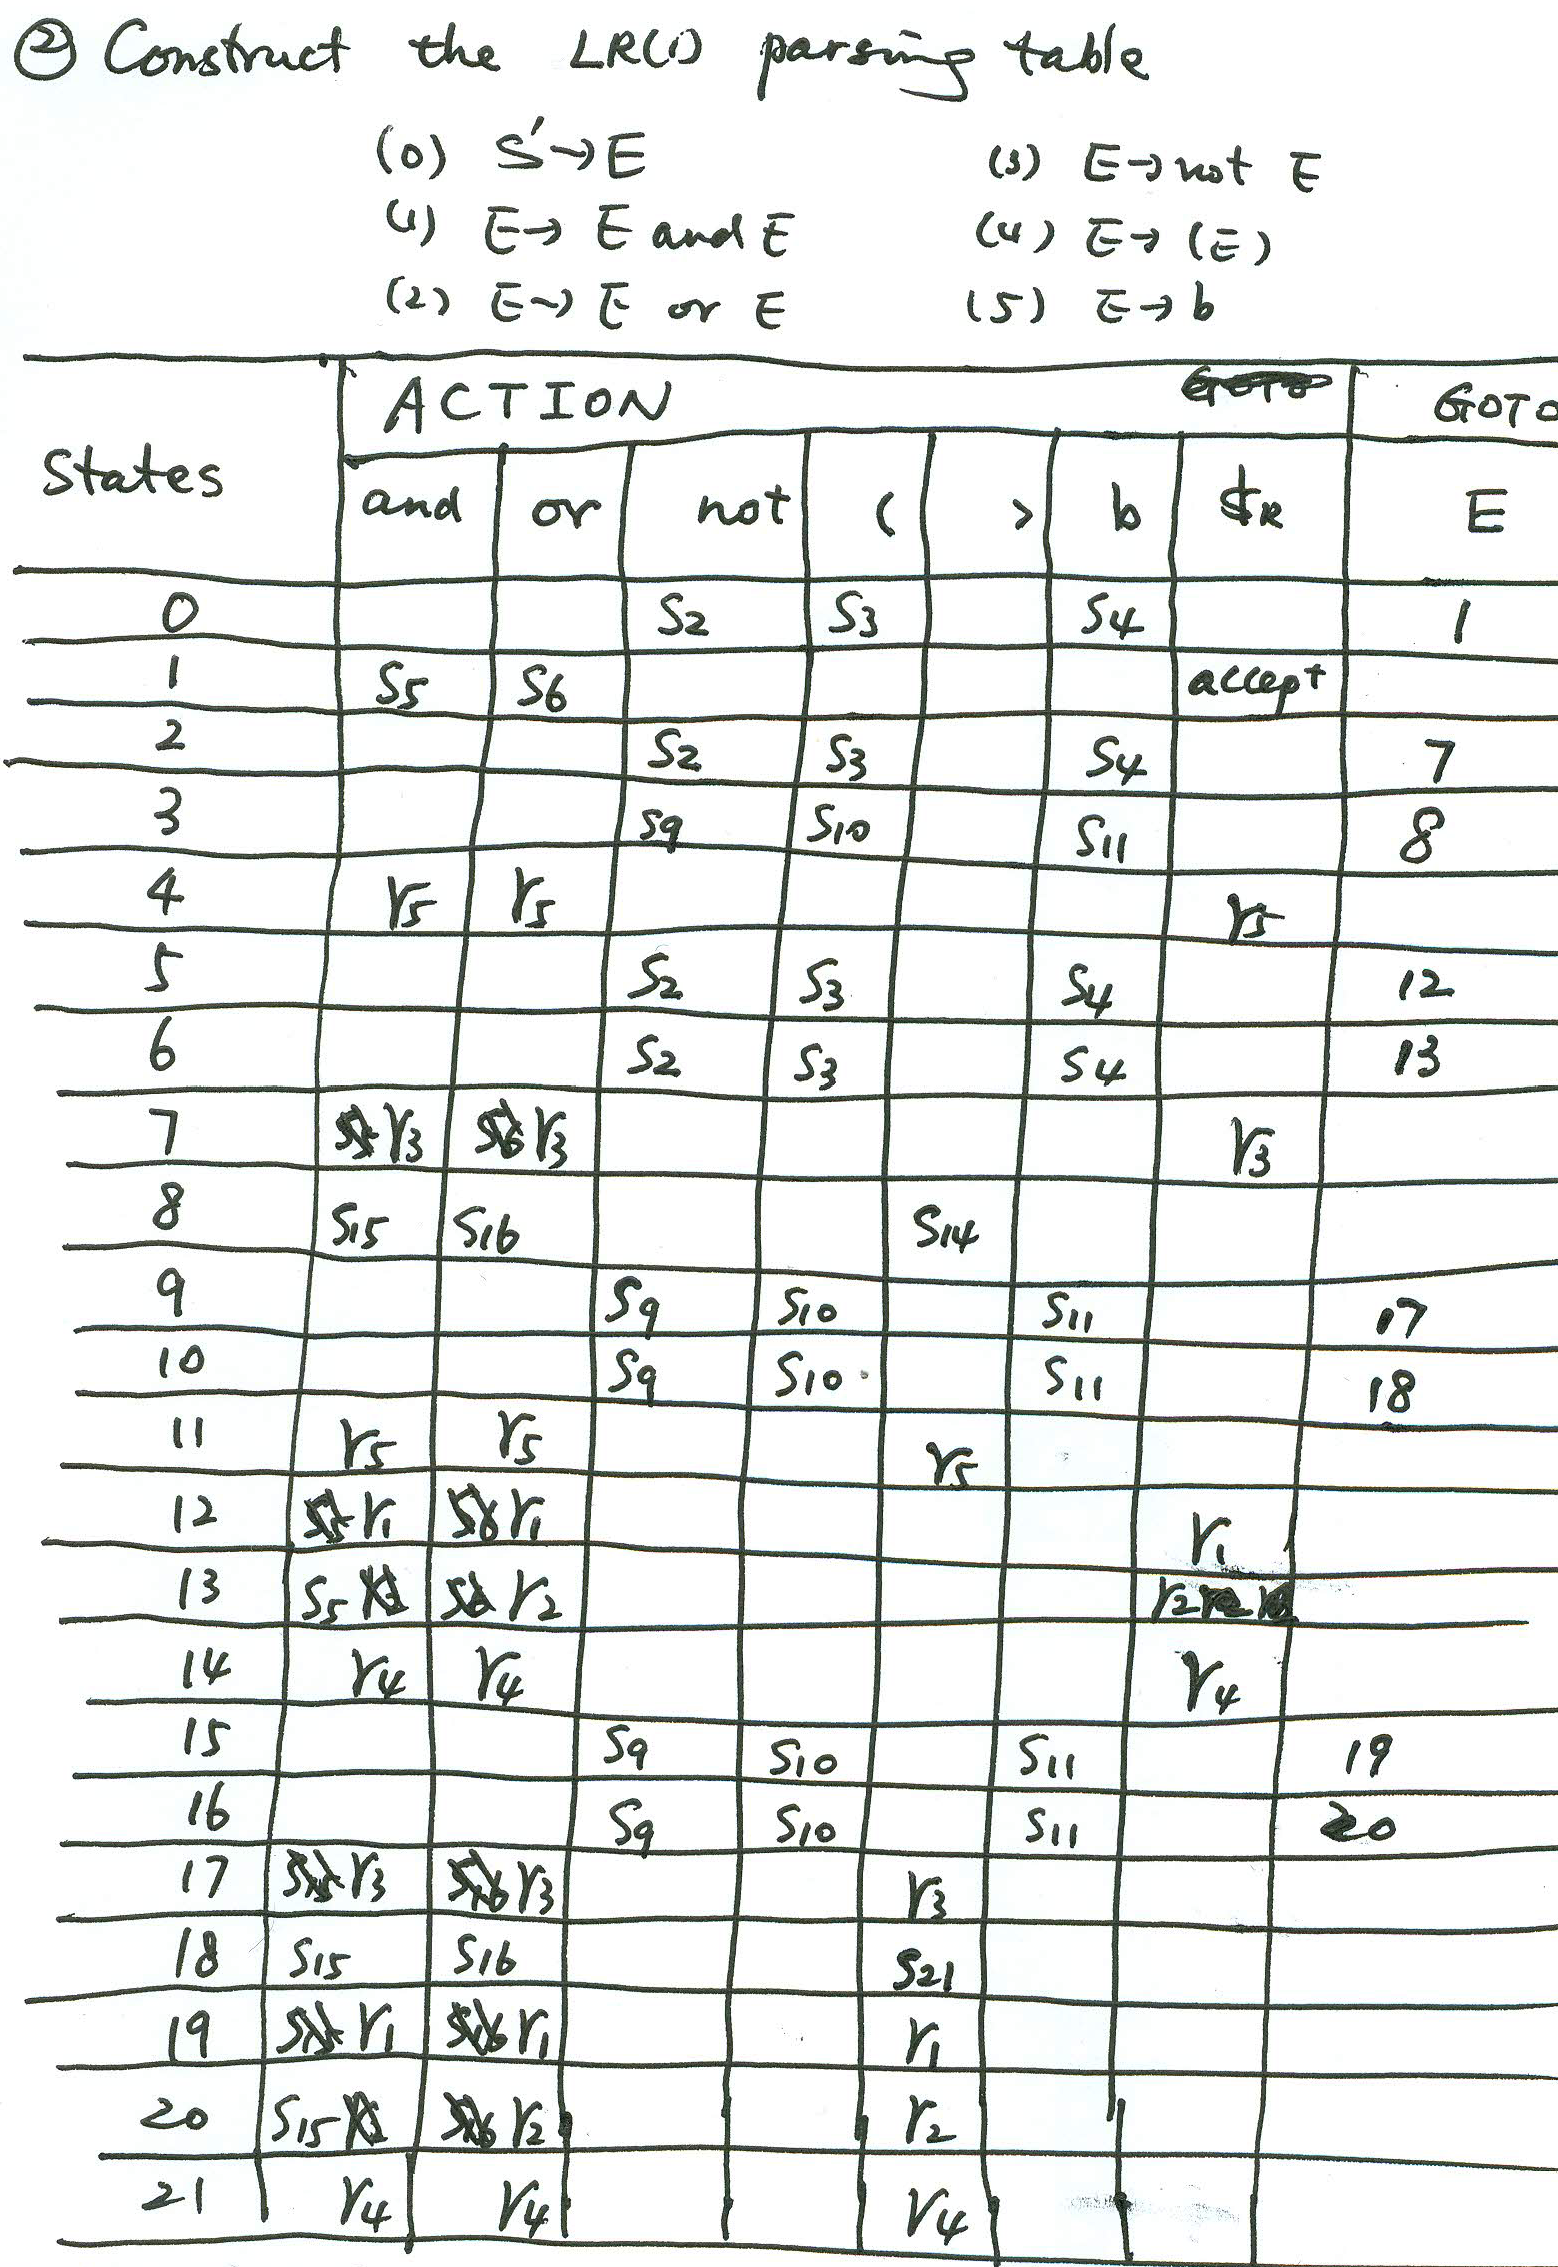 ② Construct the LR(1) parsing table
(0) S'→E (3) E→not E
(1) E→ E and E (4) E→(E)
(2) E→ E or E (5) E→b
ACTION GOTO
States and or not ( ) b $R E
0 S2 S3 S4 1
1 S5 S6 accept
2 S2 S3 S4 7
3 S9 S10 S11 8
4 r5 r5 r5
5 S2 S3 S4 12
6 S2 S3 S4 13
7 r3 r3 r3
8 S15 S16 S14
9 S9 S10 S11 17
10 S9 S10 S11 18
11 r5 r5 r5
12 r1 r1 r1
13 S5 r2 r2
14 r4 r4 r4
15 S9 S10 S11 19
16 S9 S10 S11 20
17 r3 r3 r3
18 S15 S16 S21
19 r1 r1 r1
20 S15 r2 r2
21 r4 r4 r4